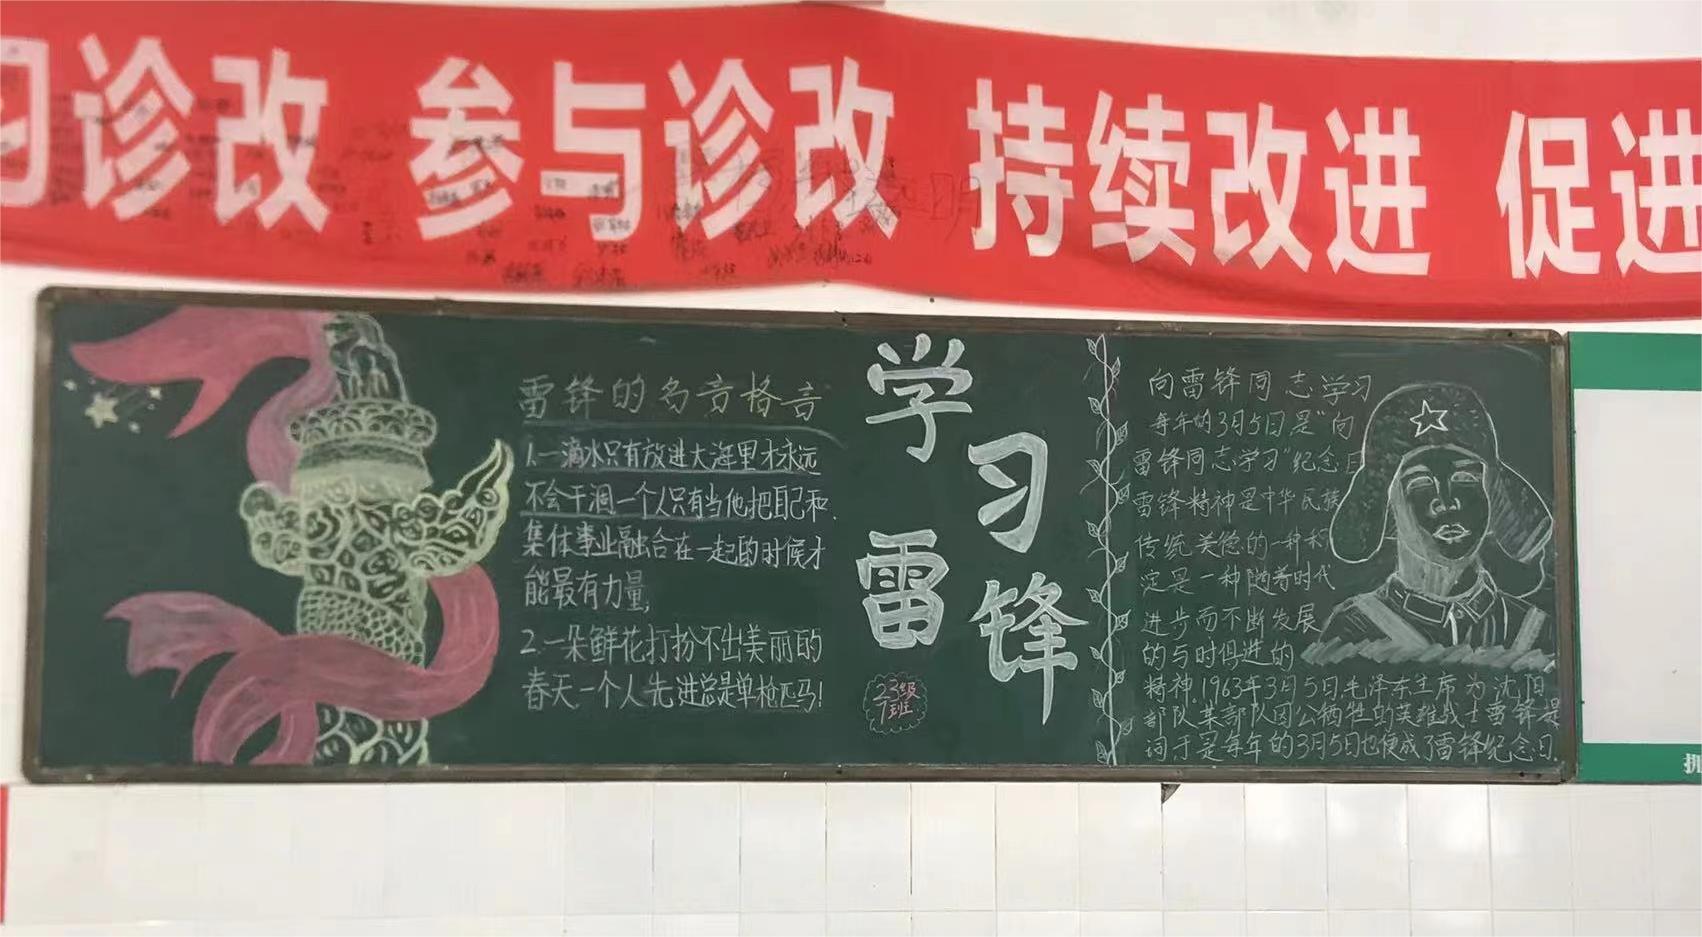 习诊改 参与诊改 持续改进 促进
雷锋的名言格言
1.一滴水只有放进大海里才永远
不会干涸一个人只有当他把自己和
集体事业融合在一起的时候才
能最有力量,
2.一朵鲜花打扮不出美丽的
春天.一个人先进总是单枪匹马!
学习
雷锋
23级
7班
向雷锋同志学习
每年的3月5日是"向
雷锋同志学习"纪念日
雷锋精神是中华民族
传统美德的一种积
淀是一种随着时代
进步而不断发展
的与时俱进的
精神.1963年3月5日,毛泽东主席为沈阳
部队某部队因公牺牲的英雄战士雷锋提
词,于是每年的3月5日也便成了雷锋纪念日.